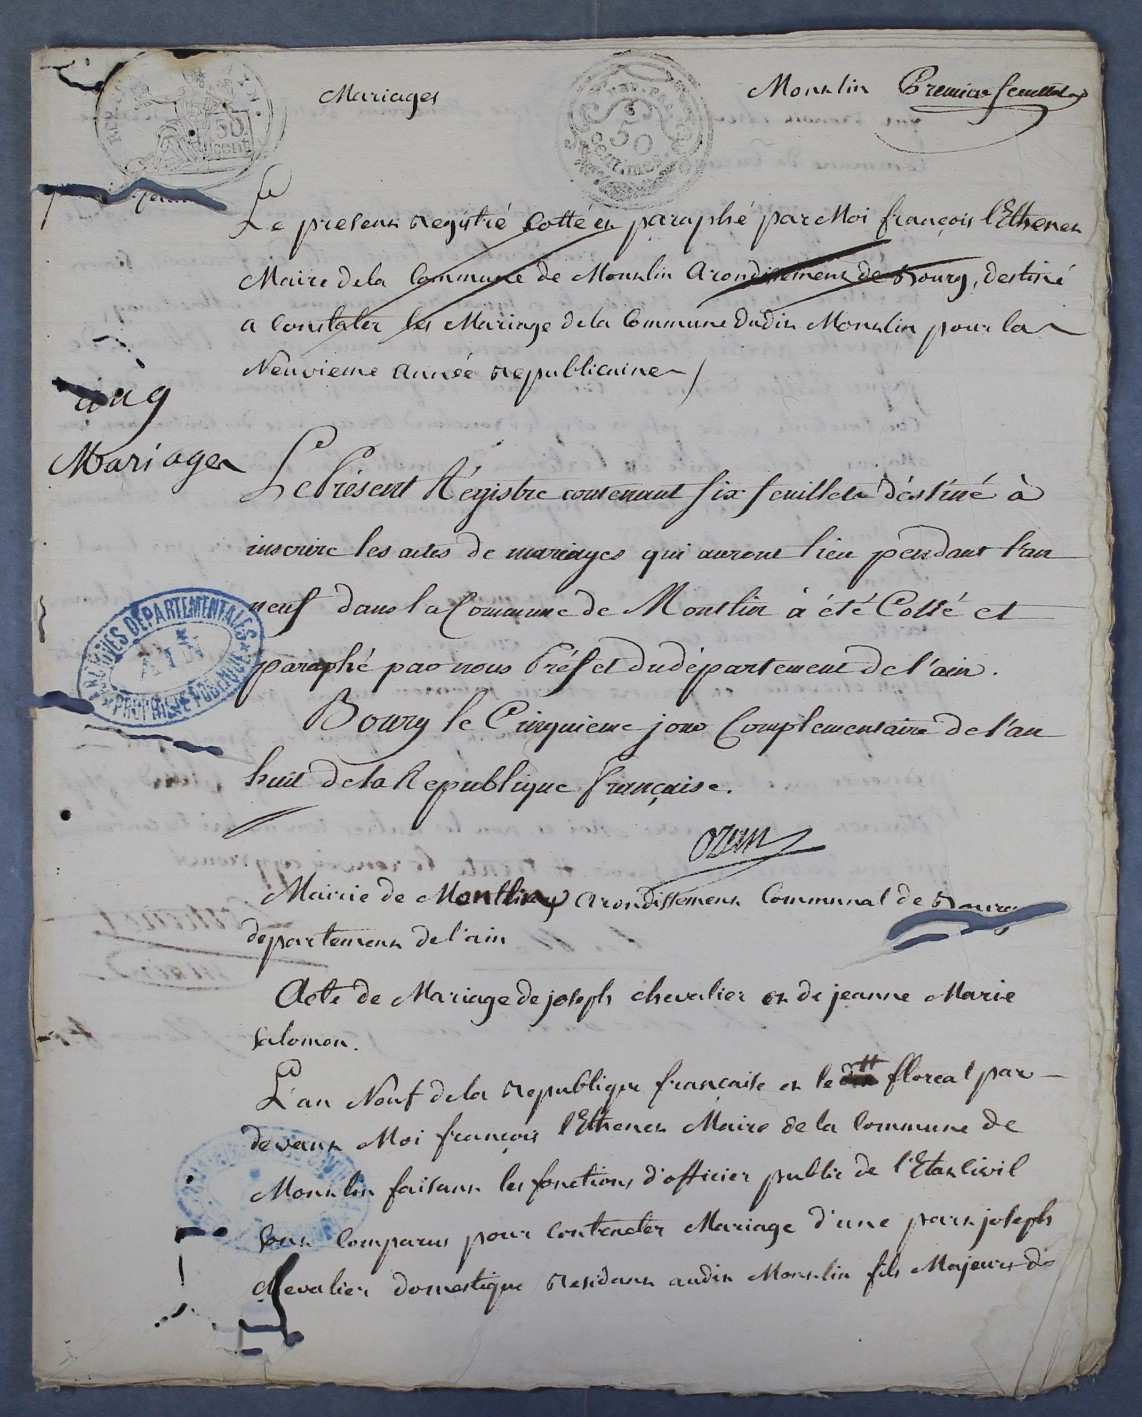 Mariages
Montlin Premier feuillet
Le present registré Cotté et paraphé par Moi françois l'Ethenet
Maire de la Commune de Montlin Arondissement de Bourg, destiné
a constater les Mariage de la Commune dudit Montlin pour la
Neuvieme année republicaine
cinq
Mariages
Le Présent Régistre contenant six feuillets déstiné à
inscrire les actes de mariages qui auront lieu pendant l'an
neuf dans la Commune de Montlin à été Cotté et
paraphé par nous Préfet du département de l'ain.
Bourg le Cinquieme jour Complementaire de l'an
huit de la Republique française.
ozun
ARCHIVES DÉPARTEMENTALES
AIN
PROPRIÉTÉ PUBLIQUE
Mairie de Montlin Arondissement Communal de Bourg
departement de l'ain
Acte de Mariage de joseph chevalier et de jeanne Marie
salomon.
L'an Neuf de la republique française et le floreal par
devant Moi françois l'Ethenet Maire de la Commune de
Montlin faisant les fonctions d'officier public de l'Etat Civil
sont Comparus pour Contracter Mariage d'une part joseph
chevalier domestique residant audit Montlin fils Majeur de